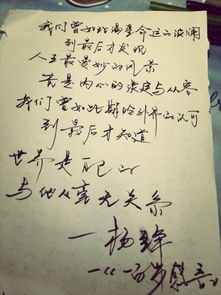 我们曾如此渴望命运的波澜
到最后才发现
人生最曼妙的风景
竟是内心的淡定与从容
我们曾如此期盼外界的认可
到最后才知道
世界是自己的
与他人毫无关系
—杨绛
—《一百岁感言》